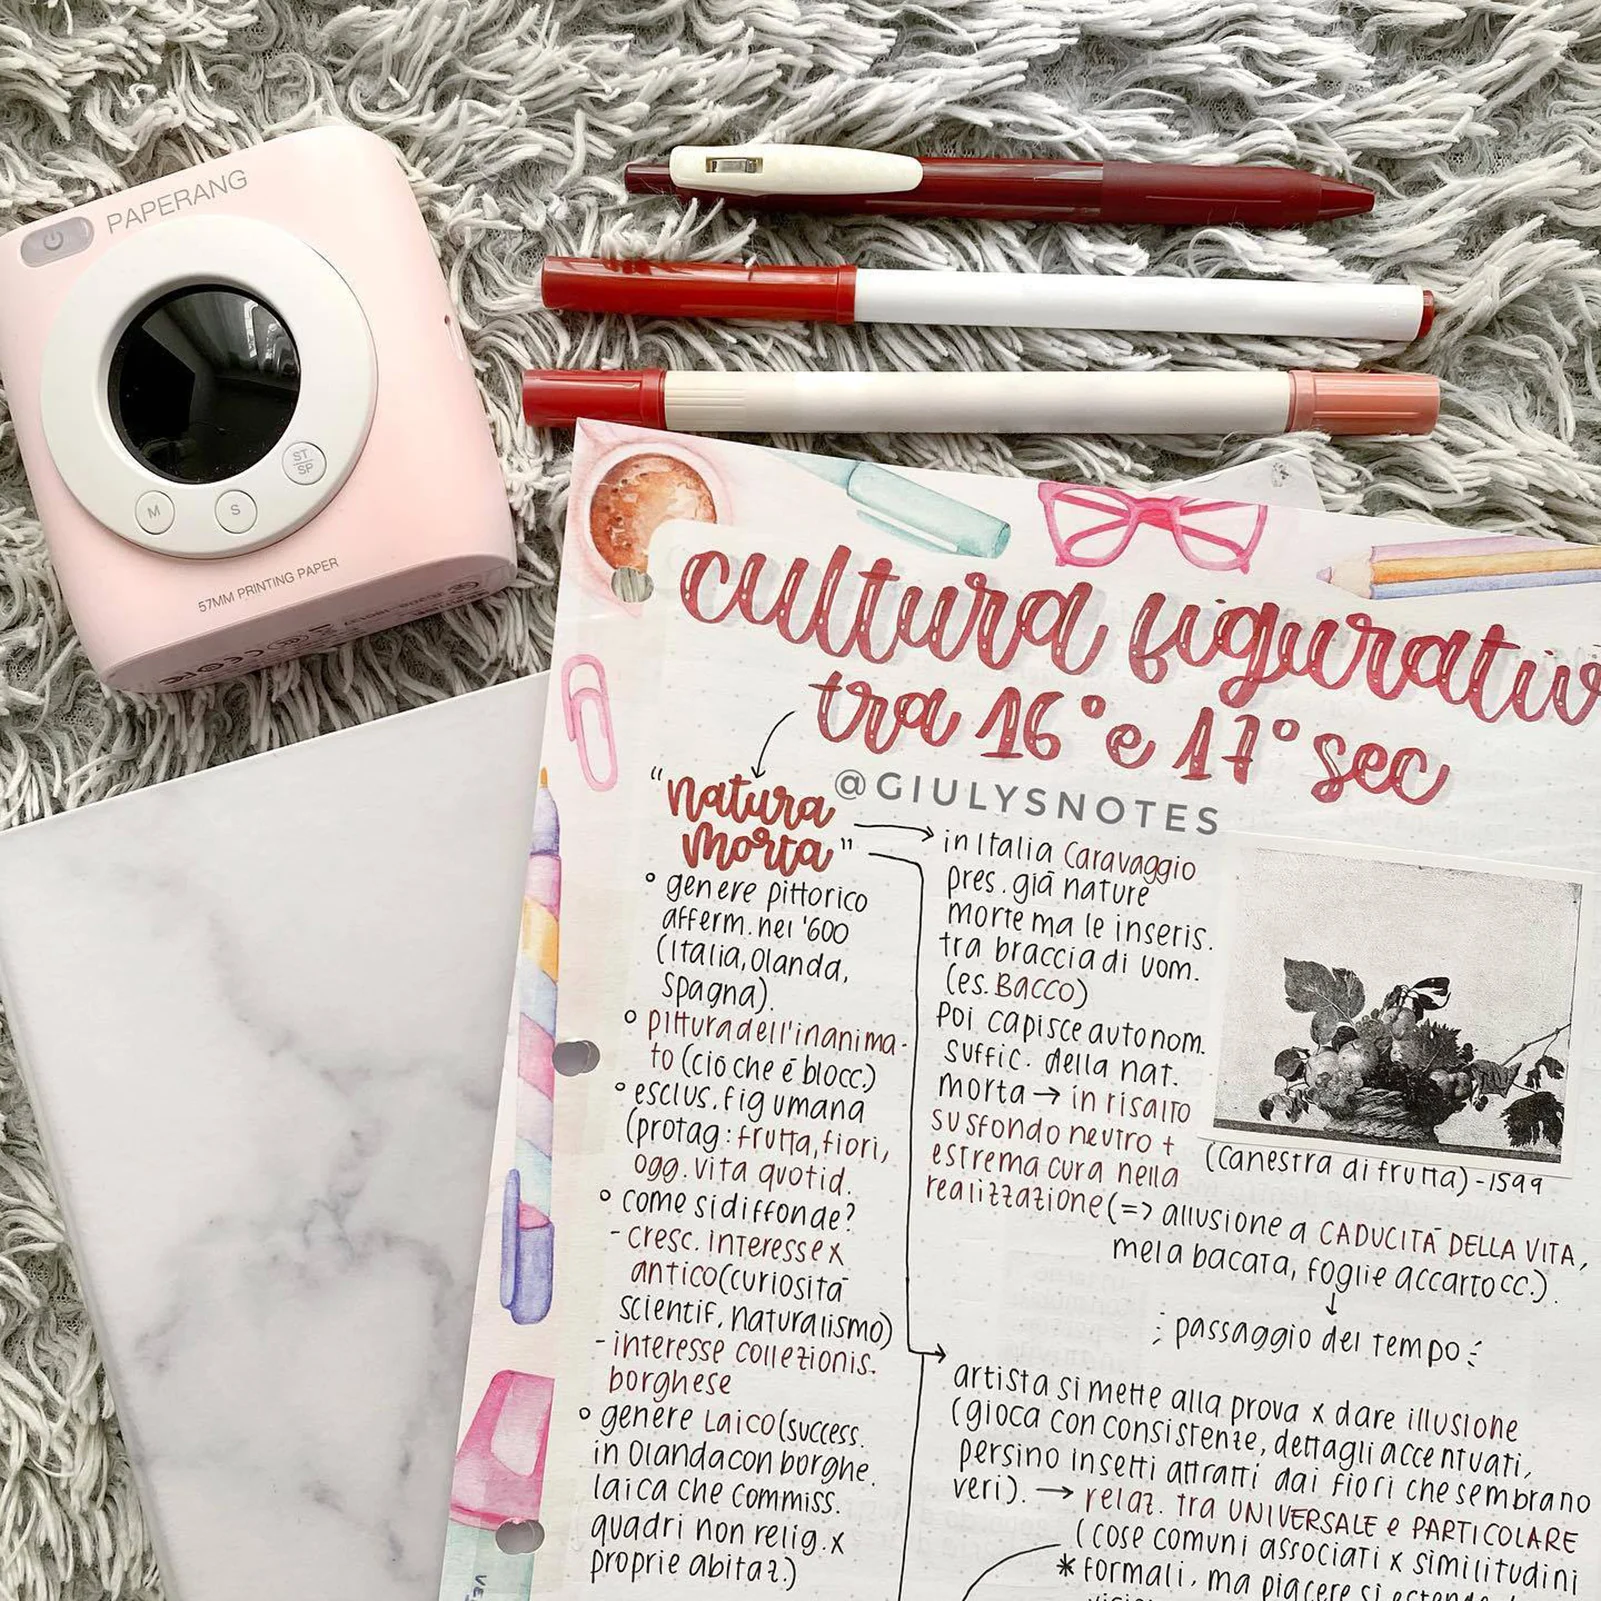 PAPERANG
ST
SP
M
S
57MM PRINTING PAPER
cultura figurativ
tra 16° e 17° sec
@GIULYSNOTES
"natura
morta"
° genere pittorico
afferm. nel '600
(Italia, Olanda,
Spagna).
° pittura dell'inanima-
to (ciò che é blocc.)
° esclus. fig umana
(protag: frutta, fiori,
ogg. vita quotid.
° come si diffonde?
- cresc. interesse x
antico (curiosità
scientif, naturalismo)
- interesse collezionis.
borghese
° genere LAICO (success.
in Olanda con borghe.
laica che commiss.
quadri non relig. x
proprie abitaz.)
in Italia Caravaggio
pres. già nature
morte ma le inseris.
tra braccia di uom.
(es. Bacco)
Poi capisce autonom.
suffic. della nat.
morta → in risalto
su sfondo neutro +
estrema cura nella
realizzazione (=> allusione a CADUCITÀ DELLA VITA,
mela bacata, foglie accartocc.).
↓
passaggio del tempo
(canestra di frutta) - 1599
artista si mette alla prova x dare illusione
(gioca con consistenze, dettagli accentuati,
persino insetti attratti dai fiori che sembrano
veri). → relaz. tra UNIVERSALE e PARTICOLARE
(cose comuni associati x similitudini
* formali, ma piacere si